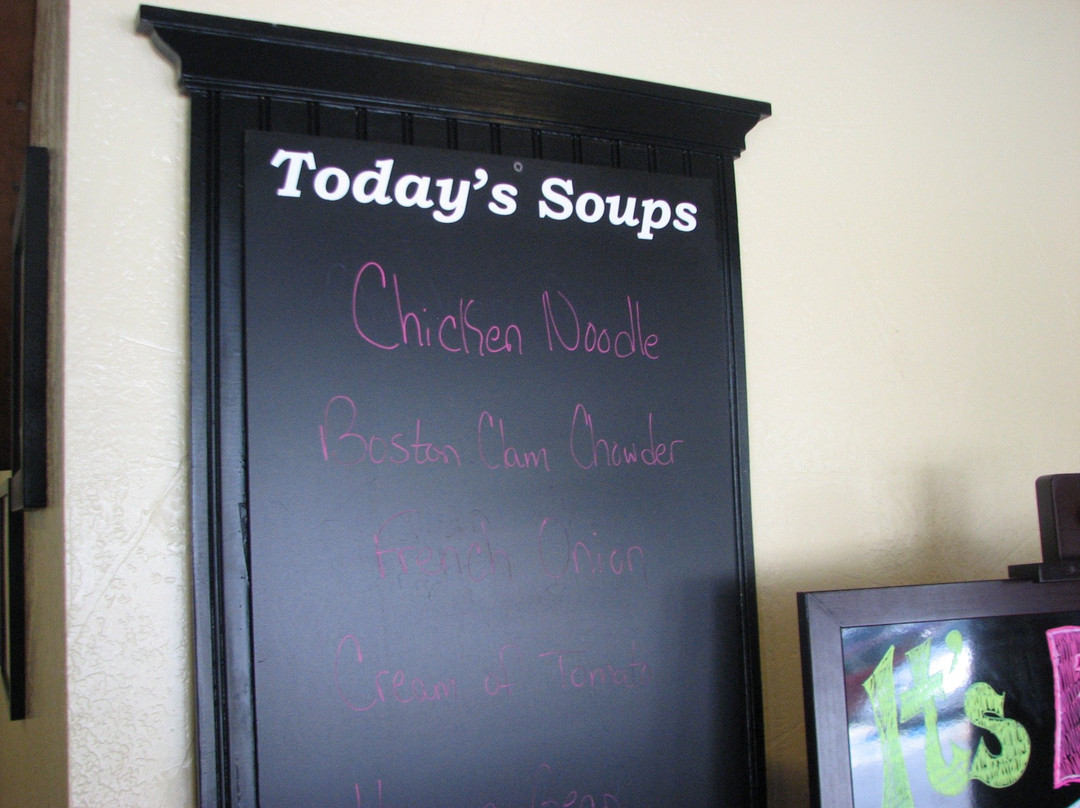 Today's Soups
Chicken Noodle
Boston Clam Chowder
French Onion
Cream of Tomato
It's